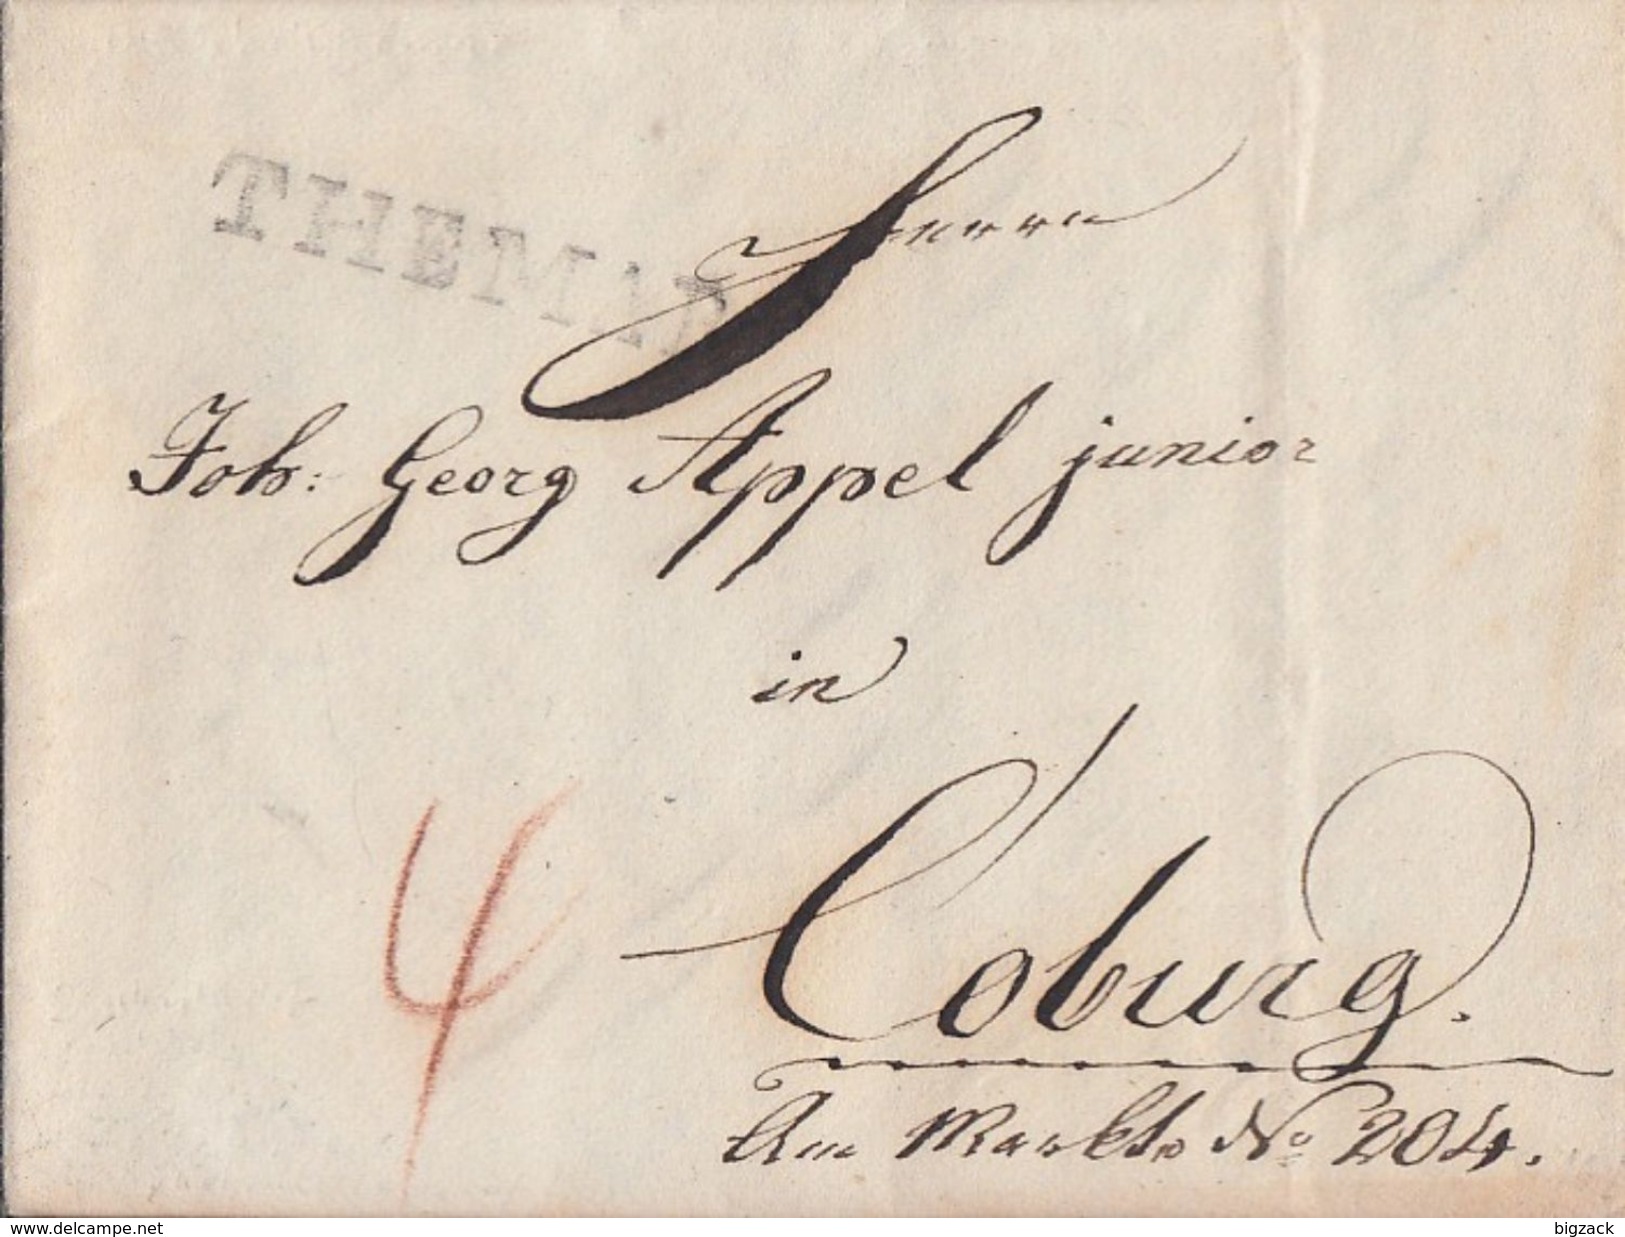 THEMAR
Herrn
Joh: Georg Appel junior
in
Coburg.
4
Am Markte No 204.
www.delcampe.net
bigzack